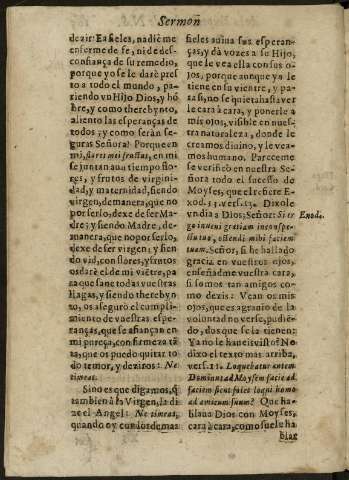 Sermon
dezir: Ea fieles, nadie me
enferme de fe, ni de des-
confiança de su remedio,
porque yo se le darè pres-
to a todo el mundo, pa-
riendo vn Hijo Dios, y hõ
bre, y como therebynto,
aliento las esperanças de
todos; y como seràn se-
guras Señora? Porque en
mi, flores mei fructus, en mi
se juntan a vn tiempo flo-
res, y frutos de virgini-
dad, y maternidad, siendo
virgen, de manera, que no
por serlo, dexe de ser Ma-
dre; y siendo Madre, de
manera, que no por serlo,
dexe de ser virgen; y sien-
do vid, con flores, y frutos
os darè el de mi viẽtre, pa
ra que sane todas vuestras
llagas, y siendo therebyn-
to, os aseguro el cumpli-
miento de vuestras espe-
ranças, que se afiançan en
mi pureça, con firmeza tã
ta, que os puedo quitar to
do temor, y deziros: Ne
timeas.
Sino es que digamos, q̃
tambien à la Virgen, la di
ze el Angel: Ne timeas,
quando oy con los demas
fieles auiua sus esperan-
ças, y dà vozes a su Hijo,
que le vea ella con sus o-
jos, porque aunque ya le
tiene en su vientre, y pa-
ra si, no se quieta hasta ver
le cara à cara, y ponerle a
mis ojos, visible en nues-
tra naturaleza, donde le
creamos diuino, y le vea-
mos humano. Pareceme
se verificò en nuestra Se-
ñora todo el sucesso de
Moyses, que el refiere E-
xod. 33. vers. 13. Dixole
vn dia a Dios; Señor: Si er
Exod.
go inueni gratiam in conspe-
ctu tuo, ostendi mihi faciem
tuam. Señor, si he hallado
gracia en vuestros ojos,
enseñadme vuestra cara,
si somos tan amigos co-
mo dezis: Vean os mis
ojos, que es agrauio de la
voluntad no verse, pudiẽ-
do, dos que se la tienen:
Ya no le haueis visto? No
dizo el texto mas arriba,
vers. 11. Loquebatur autem
Dominus ad Moysem facie ad
faciem sicut solet loqui homo
ad amicum suum? Que ha-
blaua Dios con Moyses,
cara à cara, como suele ha
blar